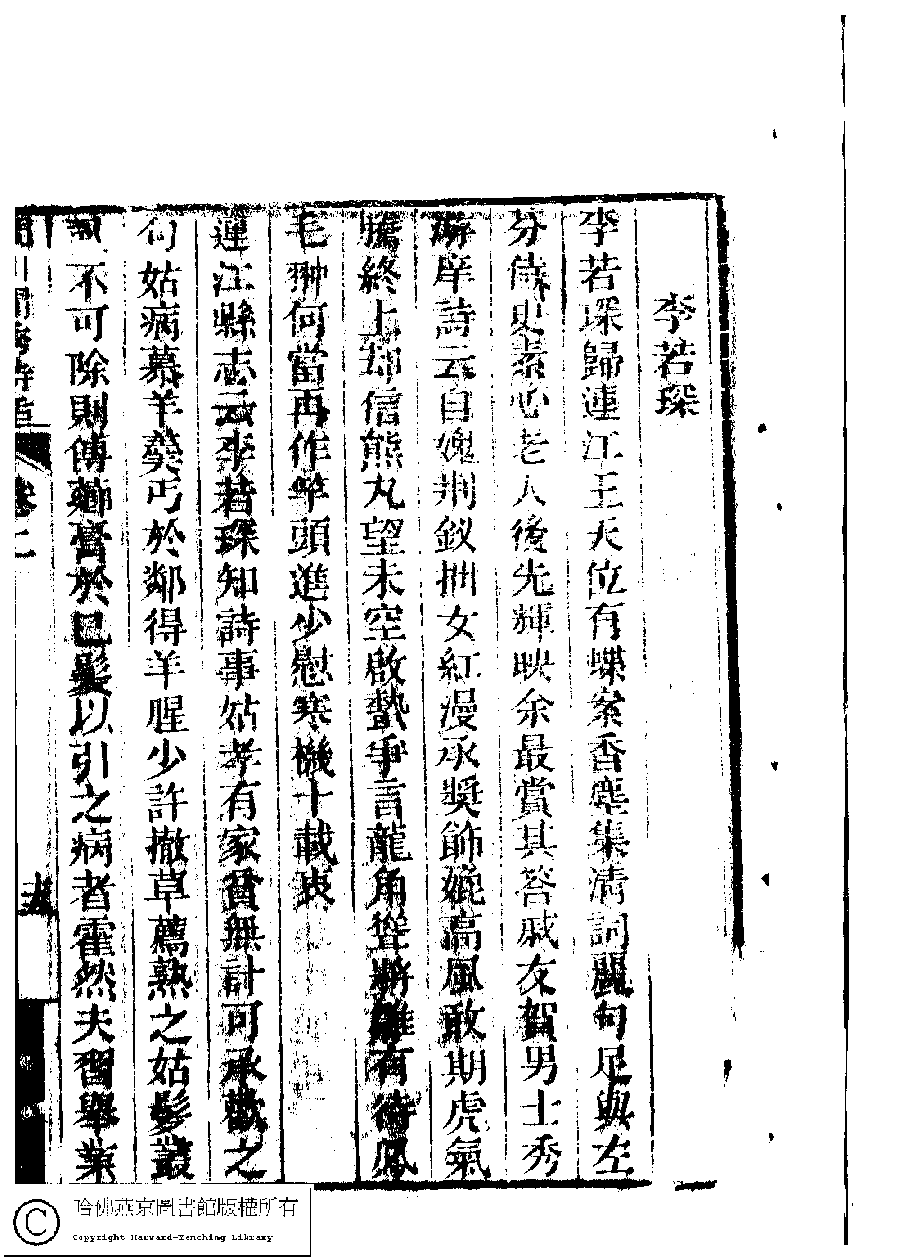 李若琛
李若琛歸連江王天位有蝶案香塵集清詞麗句足與左
芬侍史素心老人後先輝映余最賞其答戚友賀男士秀
游庠詩云自媿荆釵拙女紅漫承奬飾媲高風敢期虎氣
騰終上却信熊丸望未空啟蟄爭言龍角聳將雛有待鳳
毛翀何當再作竿頭進少慰寒機十載衷
連江縣志云李若琛知詩事姑孝有家貧無計可承歡之
句姑病慕羊羹丐於鄰得羊腥少許撤草薦熟之姑髮叢
蝨不可除則傅藥膏於己髮以引之病者霍然夫習舉業
卷二
哈佛燕京圖書館版權所有
Copyright Harvard-Yenching Library